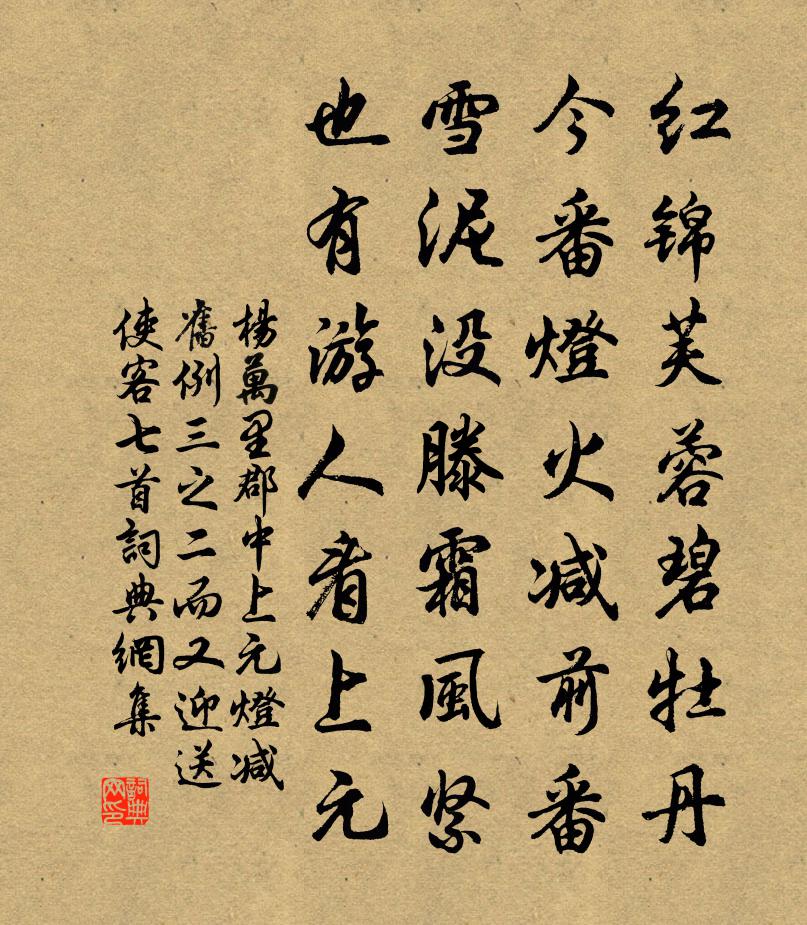 红锦芙蓉碧牡丹
今番燈火减前番
雪泥没膝霜風紧
也有游人看上元
楊萬里郡中上元燈减
舊例三之二而又迎送
使客七首詞典網集
詞典网印